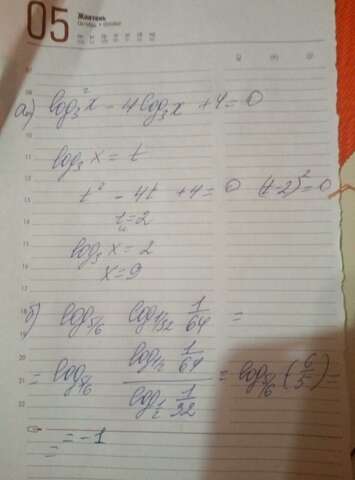 05 Жовтень
Октябрь • October
а) log₃²x - 4log₃x + 4 = 0
log₃ x = t
t² - 4t + 4 = 0 (t-2)² = 0
t = 2
log₃ x = 2
x = 9
б) log₅/₆ log₁/₃₂ 1/64 =
= log₅/₆ (log₁/₂ 1/64)/(log₁/₂ 1/32) = log₅/₆ (6/5) =
= -1